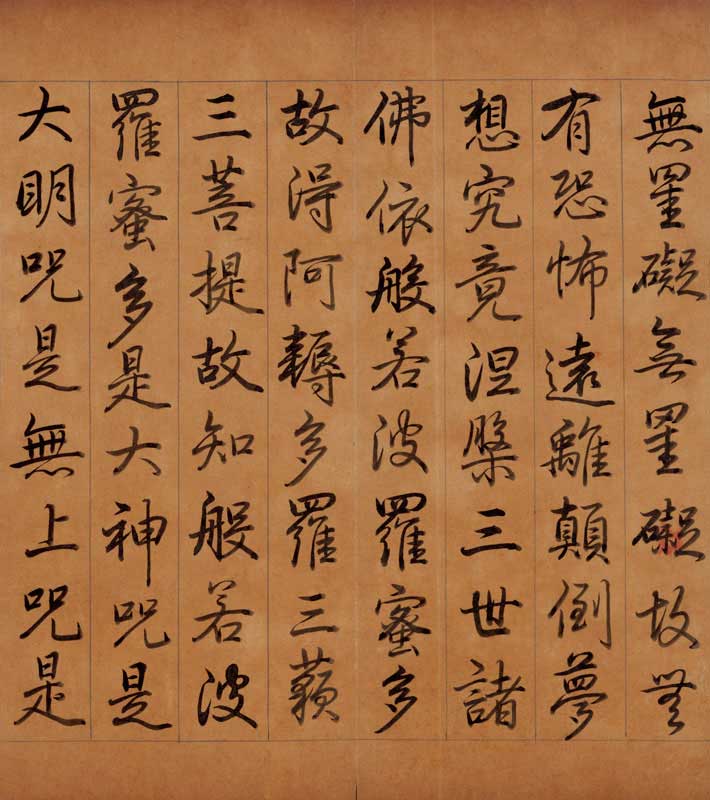 無罣礙無罣礙故無
有恐怖遠離顛倒夢
想究竟涅槃三世諸
佛依般若波羅蜜多
故得阿耨多羅三藐
三菩提故知般若波
羅蜜多是大神呪是
大明呪是無上呪是